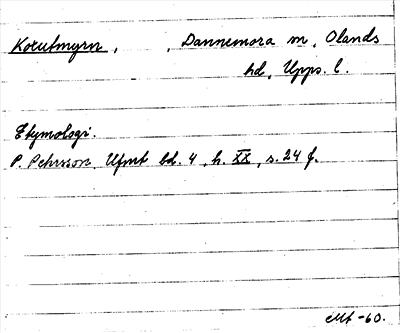 Kolutmyrn, , Dannemora sn, Olands
hd, Upps. l.
Etymologi.
P. Pehrsson, Ufmt bd. 4, h. XX, s. 24 f.
-60.